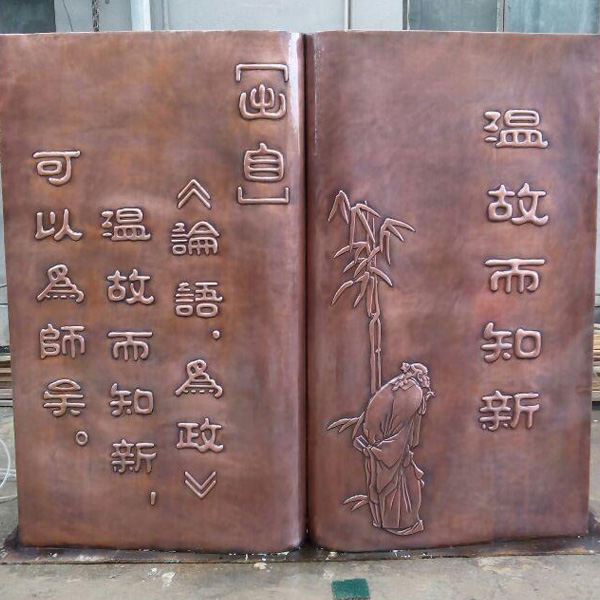 温故而知新
[出自]
《論語·為政》
温故而知新,
可以為師矣。